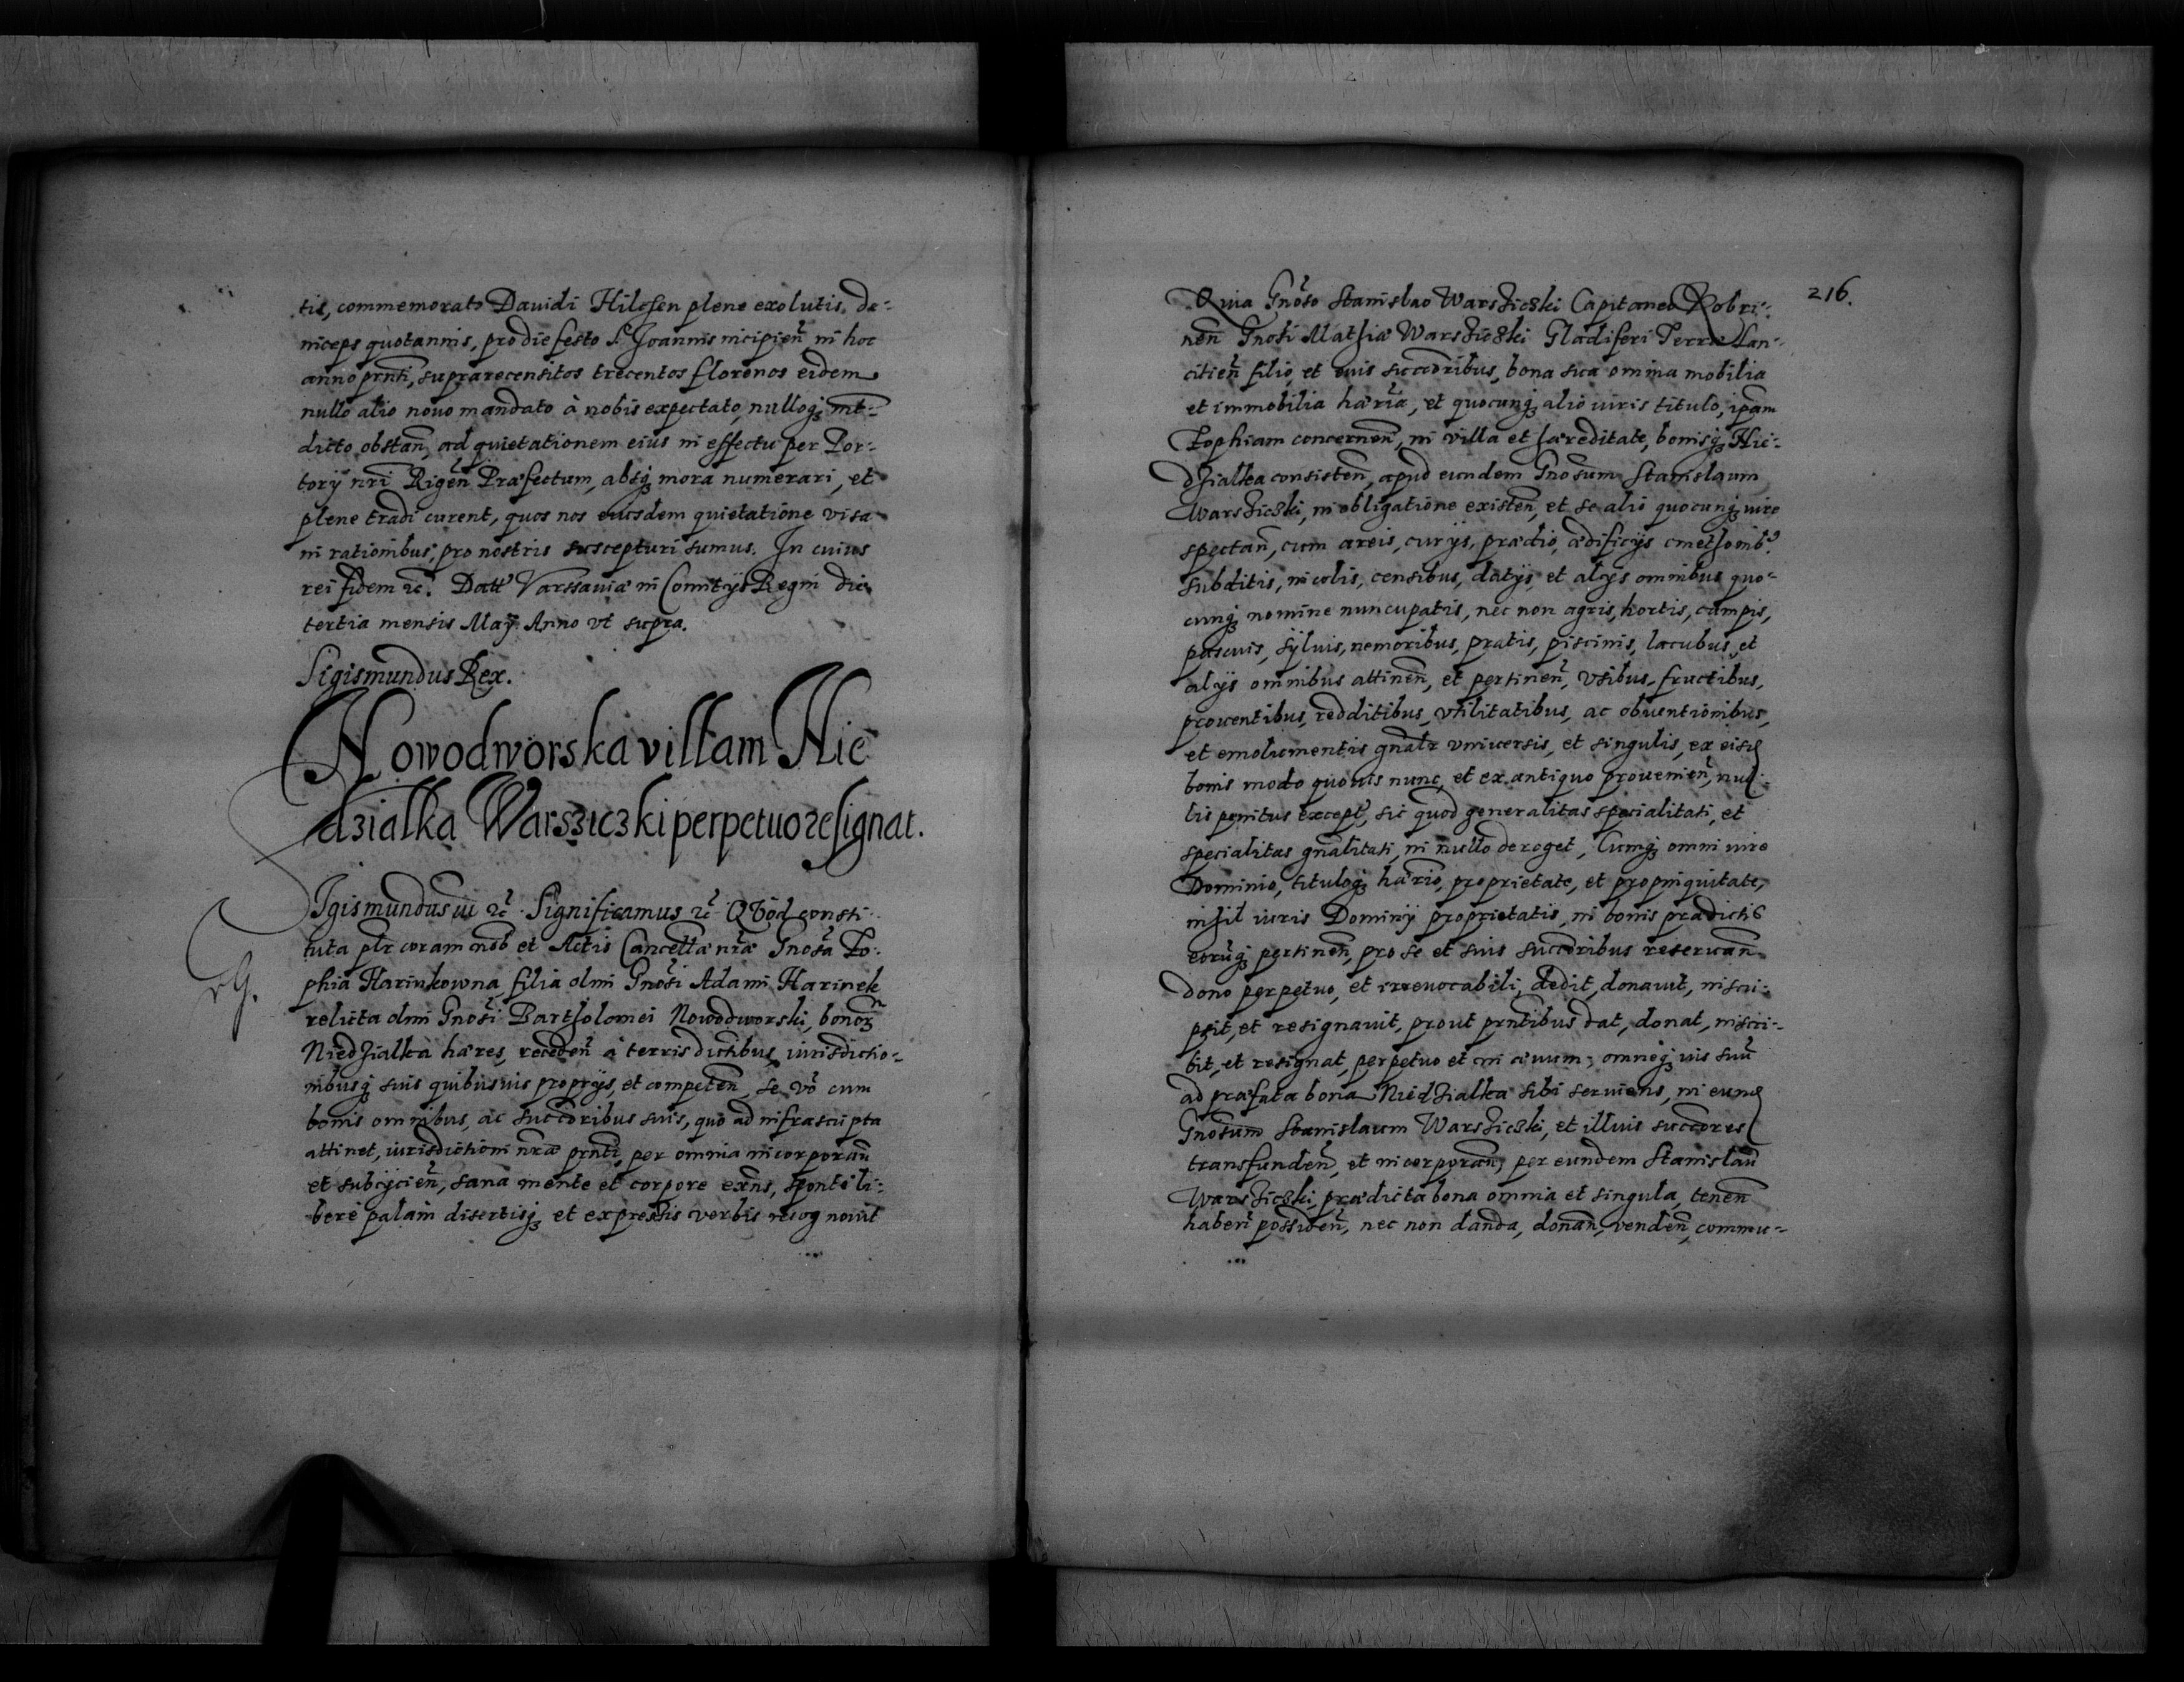 tis, commemorato Davidi Hilchen plene exolutis, de-
inceps quotannis, pro die festo S. Joannis incipien̄ in hoc
anno prn̄ti, suprarecensitos trecentos florenos eidem
nullo alio novo mandato à nobis expectato, nulloq; int-
dicto obstan̄, ad quietationem eius in effectu per Por-
torij nr̄i Rigen̄ Præfectum, absq; mora numerari, et
plene tradi curent, quos nos eiusdem quietatione visa
in rationibus, pro nostris suscepturi sumus. In cuius
rei fidem ꝛc. Datt̄ Varssaviæ in Comitijs Regni die
tertia mensis Maij Anno vt supra.
Sigismundus Rex.
Nowodworska villam Nie
dzialka Warsziczki perpetuo resignat.
Sigismundus iii ꝛc. Significamus ꝛc Qvod consti-
tuta plr̄ coram nob̄ et Actis Cancellæ nr̄æ Gnosā Zo-
phia Harinkowna filia olmi Gnosī Adami Harinek
relicta olmi Gnosī Bartholomei Nowodworski, bonoꝝ
Niedzialka hæres, receden̄ à terris dictibus iurisdictio-
nibusq; suis quibusuis proprijs, et competen̄, se vō cum
bonis omnibus, ac succōribus suis, quo ad infrascripta
attinet, iurisdictioni nr̄æ prn̄ti, per omnia incorporan̄
et subijcien̄, sana mente et corpore exn̄s, sponte li-
bere palam disertisq; et expressis verbis recognouit
rG.
216.
Quia Gnosō Stanislao Warsziczki Capitaneo Kobri-
nen̄ Gnosī Mathiæ Warsziczki Gladiferi Terræ Lan-
citien̄ filio, et eius succōribus, bona sua omnia mobilia
et immobilia hær̄ia, et quocunq; alio iuris titulo, ipsam
Zophiam concernen̄, in villa et hæreditate, bonisq; Nie-
dzialka consisten̄, apud eundem Gnosum Stanislaum
Warsziczki, in obligatione existen̄, et se alio quocunq; iure
spectan̄, cum areis, curijs, prædio, ædificijs cmethonib9
subditis, incolis, censibus, datijs, et alijs omnibus quo-
cunq; nomine nuncupatis, nec non agris, hortis, campis,
pascuis, syluis, nemoribus, pratis, piscinis, lacubus et
alijs omnibus attinen̄, et pertinen̄, vsibus, fructibus,
prouentibus, redditibus, vtilitatibus, ac obuentionibus,
et emolumentis gn̄alr vniuersis, et singulis, ex eisd
bonis modo quouis nunc, et ex antiquo prouenien̄, nul-
lis penitus except̄, sic quod generalitas specialitati, et
specialitas gn̄alitati, in nullo deroget, Cumq; omni iure
Dominio, tituloq; hær̄io, proprietate, et propinquitate,
nihil iuris Dominij proprietatis, in bonis prædictis
eorūq; pertinen̄, pro se et suis succōribus reseruan̄
dono perpetuo, et irreuocabili, dedit, donauit, inscri-
psit, et resignauit, prout prn̄tibus dat, donat, inscri-
bit, et resignat, perpetuo et in æuum, omneq; ius suū
ad præfata bona Niedzialka sibi seruiens, in eund
Gnosum Stanislaum Warsziczki, et illius succōres
transfunden̄, et incorporan̄, per eundem Stanislaū
Warsziczki, prædicta bona omnia et singula, tenen̄
haben̄ possiden̄, nec non danda, donan̄, venden̄, commu-